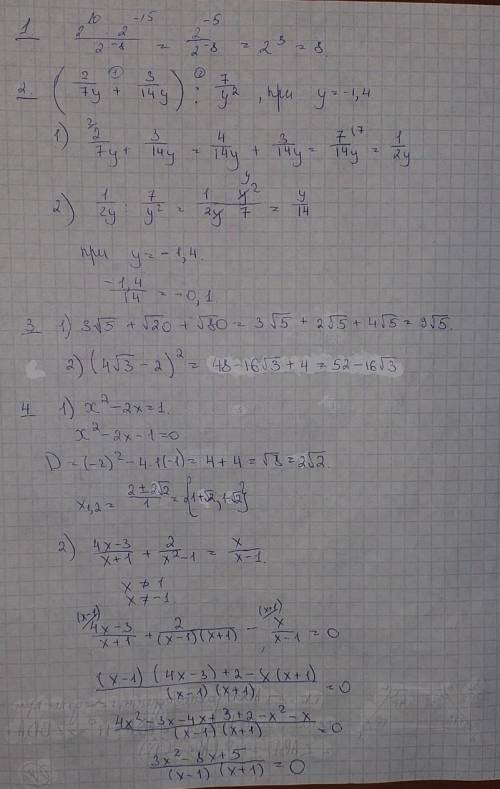 1 (2^10 · 2^-15) / 2^-8 = 2^-5 / 2^-8 = 2^3 = 8.
2. (2/7y + 3/14y) : 7/y^2, при y = -1,4
1) 2/7y + 3/14y = 4/14y + 3/14y = 7/14y = 1/2y
2) 1/2y : 7/y^2 = 1/2y · y^2/7 = y/14
при y = -1,4.
-1,4/14 = -0,1
3 1) 3√5 + √20 + √80 = 3√5 + 2√5 + 4√5 = 9√5.
2) (4√3 - 2)^2 = 48 - 16√3 + 4 = 52 - 16√3
4 1) x^2 - 2x = 1.
x^2 - 2x - 1 = 0
D = (-2)^2 - 4·1(-1) = 4 + 4 = √8 = 2√2.
x1,2 = (2 ± 2√2)/1 = {1+√2, 1-√2}
2) (4x-3)/(x+1) + 2/(x^2-1) = x/(x-1).
x ≠ 1
x ≠ -1
(x-1) (x+1)
(4x-3)/(x+1) + 2/((x-1)(x+1)) - x/(x-1) = 0
((x-1)(4x-3) + 2 - x(x+1)) / ((x-1)(x+1)) = 0
(4x^2 - 3x - 4x + 3 + 2 - x^2 - x) / ((x-1)(x+1)) = 0
(3x^2 - 8x + 5) / ((x-1)(x+1)) = 0